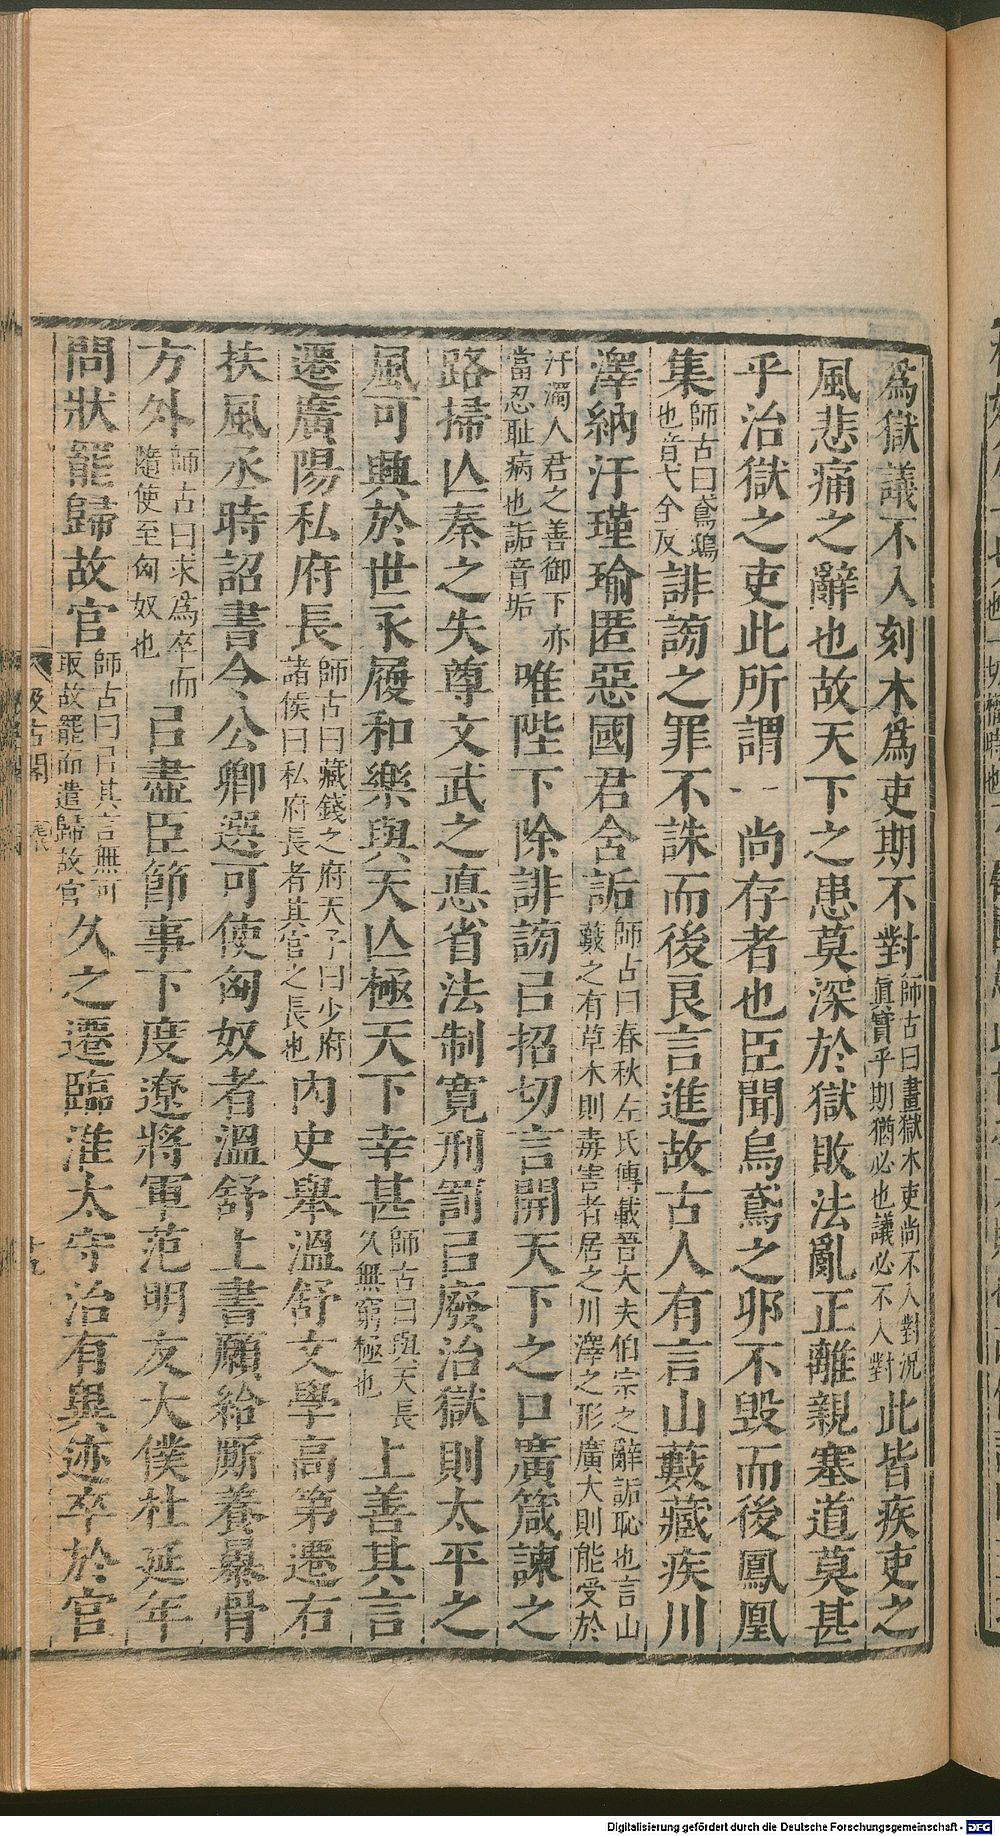 爲獄議不入刻木爲吏期不對師古曰畫獄木吏尚不入對況眞實乎期猶必也議必不入對此皆疾吏之
風悲痛之辭也故天下之患莫深於獄敗法亂正離親塞道莫甚
乎治獄之吏此所謂一尚存者也臣聞烏鳶之卵不毀而後鳳凰
集師古曰鳶鴟也音弋全反誹謗之罪不誅而後良言進故古人有言山藪藏疾川
澤納汙瑾瑜匿惡國君含詬師古曰春秋左氏傳載晉大夫伯宗之辭詬恥也言山藪之有草木則毒害者居之川澤之形廣大則能受於
汙濁人君之善御下亦當忍耻病也詬音垢唯陛下除誹謗㠯招切言開天下之口廣箴諫之
路掃亾秦之失尊文武之悳省法制寬刑罰㠯廢治獄則太平之
風可興於世永履和樂與天亾極天下幸甚師古曰與天長久無窮極也上善其言
遷廣陽私府長師古曰藏錢之府天子曰少府諸侯曰私府長者其官之長也內史舉溫舒文學高第遷右
扶風丞時詔書令公卿選可使匈奴者溫舒上書願給厮養暴骨
方外師古曰求爲卒而隨使至匈奴也㠯盡臣節事下度遼將軍范明友大僕杜延年
問狀罷歸故官師古曰㠯其言無可取故罷而遣歸故官久之遷臨淮太守治有異迹卒於官
汲古閣
Digitalisierung gefördert durch die Deutsche Forschungsgemeinschaft - DFG